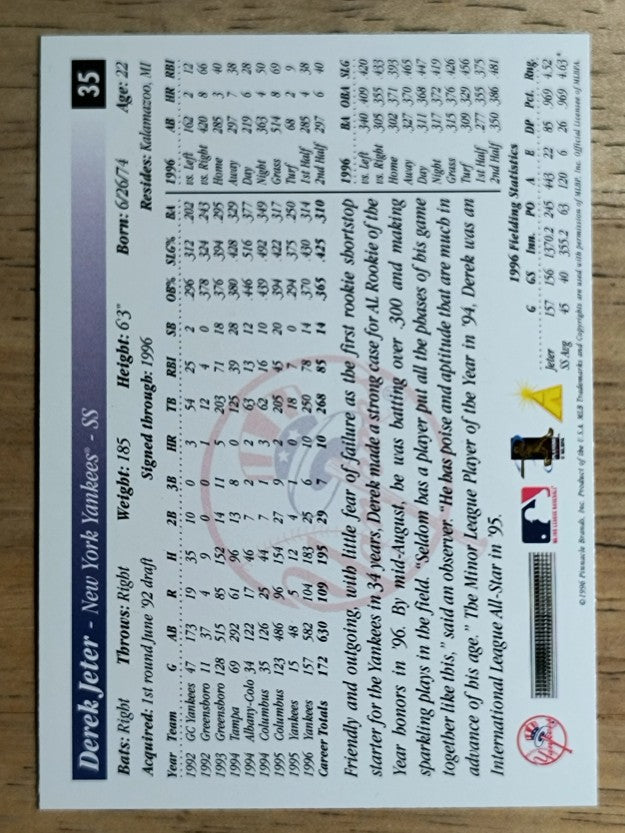 Derek Jeter - New York Yankees® - SS 35
Bats: Right Throws: Right Weight: 185 Height: 6'3" Born: 6/26/74 Age: 22
Acquired: 1st round June '92 draft Signed through: 1996 Resides: Kalamazoo, MI
Year Team G AB R H 2B 3B HR TB RBI SB OB% SLG% BA
1992 GC Yankees 47 173 19 35 10 0 3 54 25 2 .296 .312 .202
1992 Greensboro 11 37 4 9 0 0 1 12 4 0 .378 .324 .243
1993 Greensboro 128 515 85 152 14 11 5 203 71 18 .376 .394 .295
1994 Tampa 69 292 61 96 13 8 0 125 39 28 .380 .428 .329
1994 Albany-Colo 34 122 17 46 7 2 2 63 13 12 .446 .516 .377
1994 Columbus 35 126 25 44 7 1 3 62 16 10 .439 .492 .349
1995 Columbus 123 486 96 154 27 9 2 205 45 20 .394 .422 .317
1995 Yankees 15 48 5 12 4 1 0 18 7 0 .294 .375 .250
1996 Yankees 157 582 104 183 25 6 10 250 78 14 .370 .430 .314
Career Totals 172 630 109 195 29 7 10 268 85 14 .365 .425 .310
1996 AB HR RBI
vs. Left 162 2 12
vs. Right 420 8 66
Home 285 3 40
Away 297 7 38
Day 219 6 28
Night 363 4 50
Grass 514 8 69
Turf 68 2 9
1st Half 285 4 38
2nd Half 297 6 40
Friendly and outgoing, with little fear of failure as the first rookie shortstop
starter for the Yankees in 34 years, Derek made a strong case for AL Rookie of the
Year honors in '96. By mid-August, he was batting over .300 and making
sparkling plays in the field. "Seldom has a player put all the phases of his game
together like this," said an observer. "He has poise and aptitude that are much in
advance of his age." The Minor League Player of the Year in '94, Derek was an
International League All-Star in '95.
1996 BA OBA SLG
vs. Left .340 .409 .420
vs. Right .305 .355 .433
Home .302 .371 .393
Away .327 .370 .465
Day .311 .368 .447
Night .317 .372 .419
Grass .315 .376 .426
Turf .309 .329 .456
1st Half .277 .355 .375
2nd Half .350 .386 .481
1996 Fielding Statistics
G GS Inn. PO A E DP Pct. Rng.
Jeter 157 156 1370.2 245 443 22 85 .969 4.52
SS Avg 45 40 355.2 63 120 6 26 .969 4.63*
Yankees
MAJOR LEAGUE BASEBALL
©1996 Pinnacle Brands, Inc. Product of the U.S.A. MLB Trademarks and Copyrights are used with permission of MLBP, Inc. Official Licensee of MLBPA.